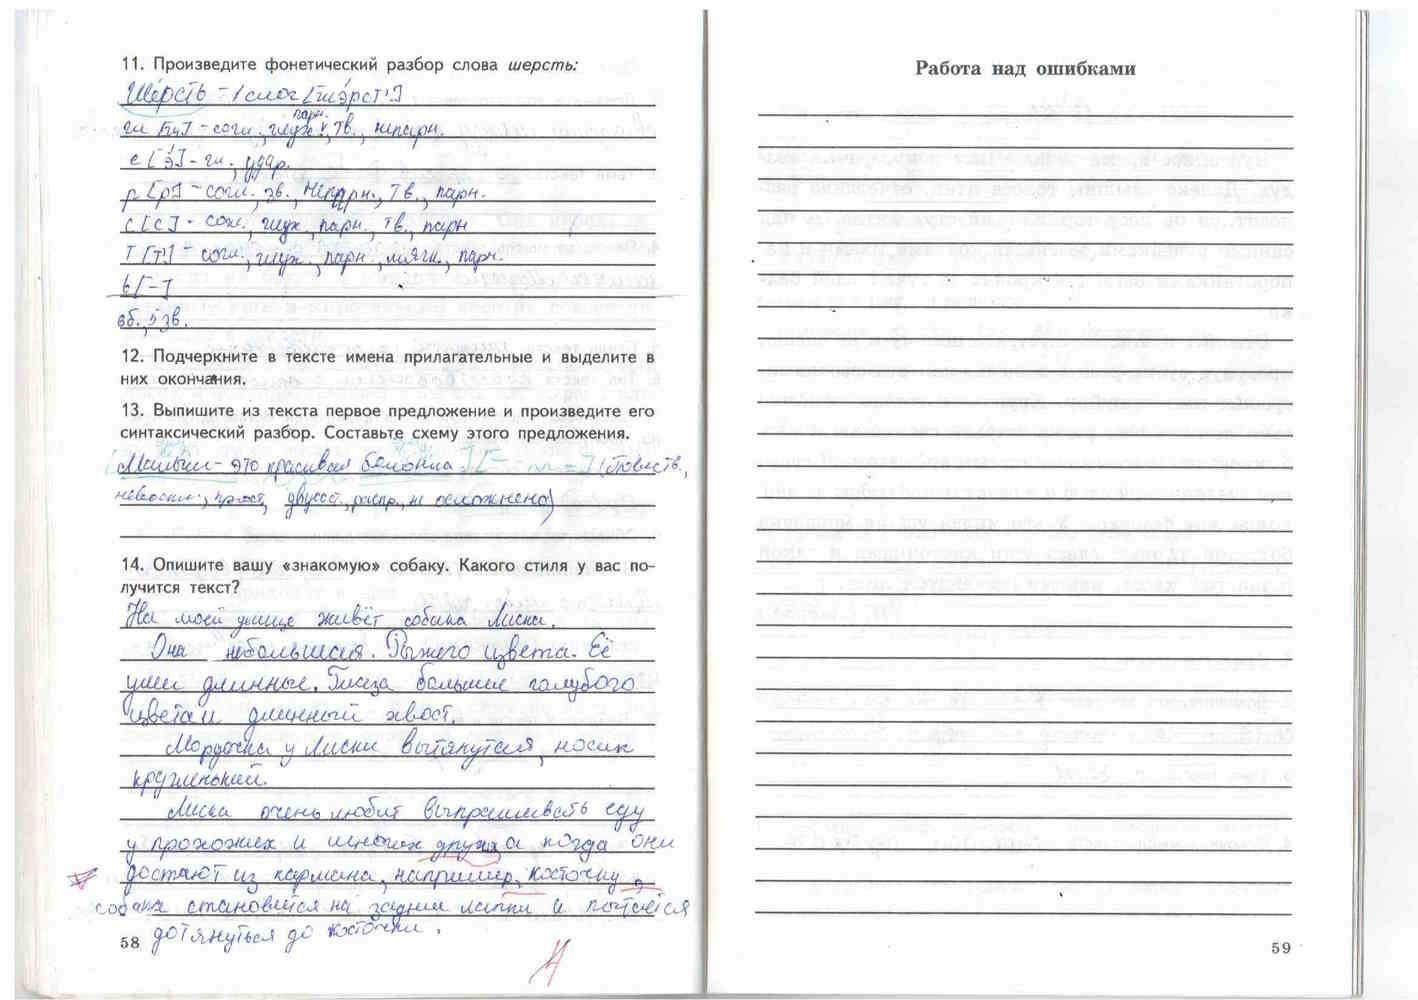 11. Произведите фонетический разбор слова шерсть:
Шерсть – 1 слог [шэрст']
парн.
ш [ш] – согл., глух., тв., непарн.
е [э] – гл., удар.
р [р] – согл., зв., непарн., тв., парн.
с [с] – сог., глух., парн., тв., парн
т [т'] – согл., глух., парн., мягк., парн.
ь [–]
6б., 5 зв.
12. Подчеркните в тексте имена прилагательные и выделите в
них окончания.
13. Выпишите из текста первое предложение и произведите его
синтаксический разбор. Составьте схему этого предложения.
[Малыш – это красивая болонка.] (повеств.,
невоскл., прост, двусост, распр., не осложнено)
14. Опишите вашу «знакомую» собаку. Какого стиля у вас по-
лучится текст?
На моей улице живёт собака Лиска.
Она небольшая. Рыжего цвета. Её
уши длинные. Глаза большие голубого
цвета и длинный хвост.
Мордочка у Лиски вытянутая, носик
кругленький.
Лиска очень любит выпрашивать еду
у прохожих и многих других а когда они
достают из кармана, например, косточку,
собака становится на задние лапки и пытается
дотянуться до косточки.
58
4
Работа над ошибками
59